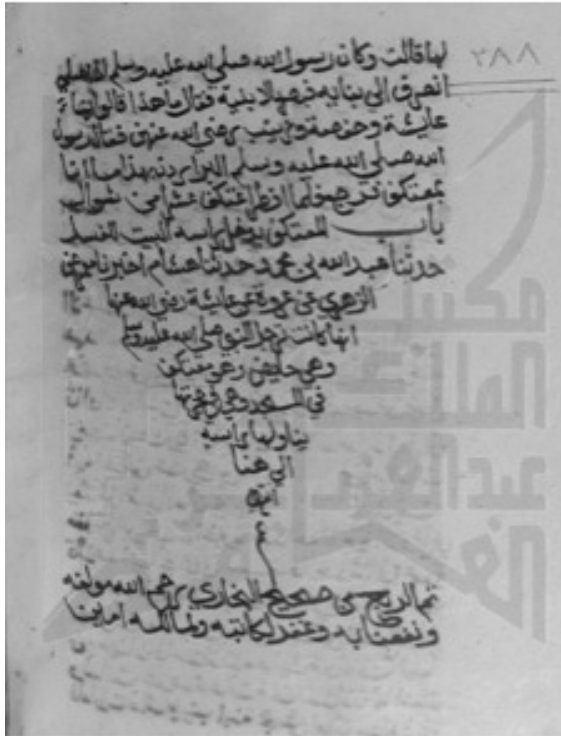 ٢٨٨
لها قالت وكان رسول الله صلي الله عليه وسلم اذا صلي
انصرف الي بنايه فبصر الابنية فقال ما هذا قالوا بنا
عايشة وحفصة وزينب رضي الله عنهن فقال رسول
الله صلي الله عليه وسلم البر اردن بهذا ما انا
بمعتكف فرجع فلما افطر اعتكف عشرا من شوال
باب المعتكف يدخل راسه البيت للغسل
حدثنا عبد الله بن محمد حدثنا هشام اخبرنا معمر عن
الزهري عن عروة عن عايشة رضي الله عنها
انها كانت ترجل النبي صلي الله عليه وسلم
وهي حايض وهو معتكف
في المسجد وهي في حجرتها
يناولها راسه
الي هنا
تم الربع من صحيح البخاري رحم الله مولفه
ونفعنا به وغفر لكاتبه ولمالكه امين
مكتبة
الملك
عبدالعزيز
العامة